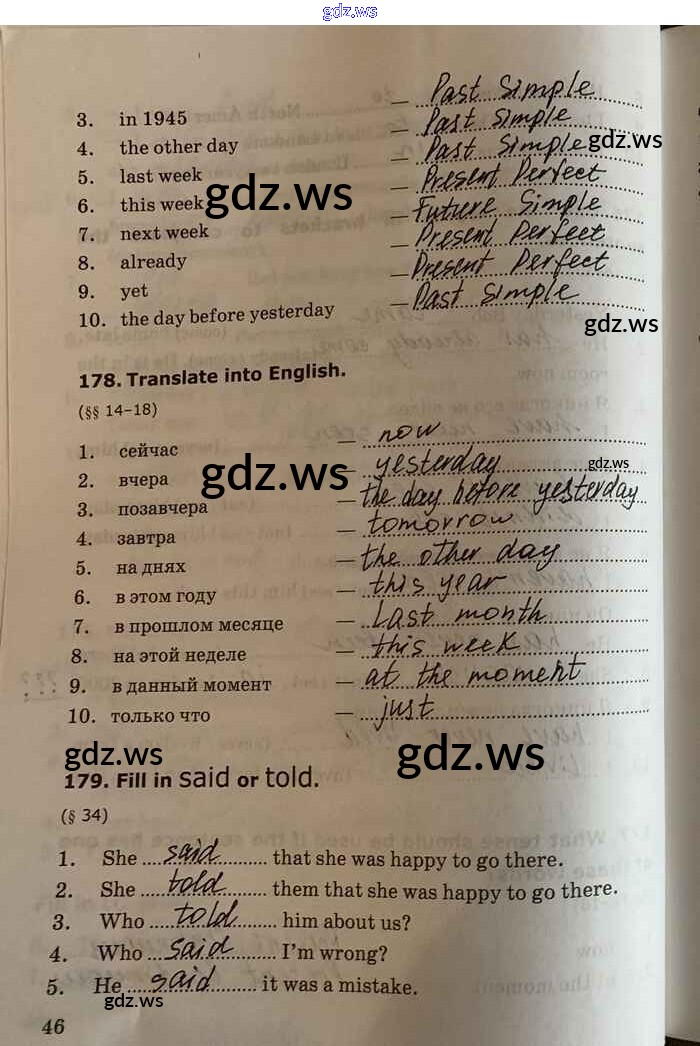 gdz.ws
3. in 1945 — Past Simple
4. the other day — Past Simple
5. last week — Past Simple
gdz.ws
6. this week — Present Perfect
gdz.ws
7. next week — Future Simple
8. already — Present Perfect
9. yet — Present Perfect
10. the day before yesterday — Past Simple
gdz.ws
178. Translate into English.
(§§ 14–18)
1. сейчас — now
2. вчера — yesterday
gdz.ws
gdz.ws
3. позавчера — the day before yesterday
4. завтра — tomorrow
5. на днях — the other day
6. в этом году — this year
7. в прошлом месяце — Last month
8. на этой неделе — this week
9. в данный момент — at the moment
10. только что — just
gdz.ws
gdz.ws
179. Fill in said or told.
(§ 34)
1. She said that she was happy to go there.
2. She told them that she was happy to go there.
3. Who told him about us?
4. Who said I'm wrong?
5. He said it was a mistake.
gdz.ws
46